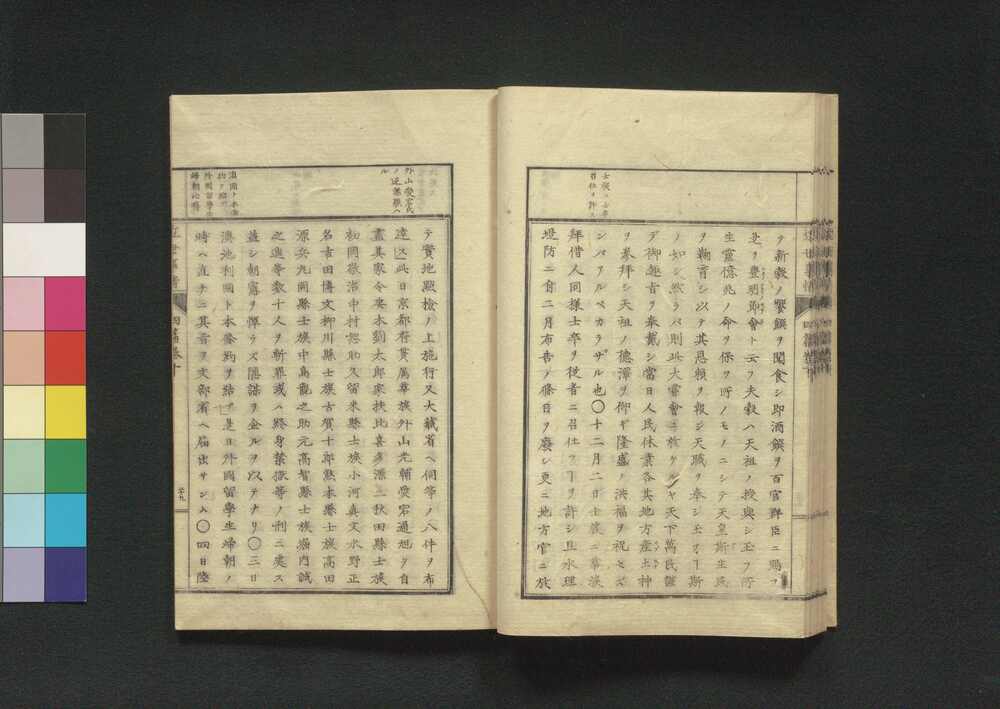 士族ニ平民
召仕ヲ許ス
ヲ新穀ノ饗饌ヲ聞食シ即酒饌ヲ百官群臣ニ賜フ
是ヲ豊明節會ト云フ夫穀ハ天祖ノ授與シ玉フ所
生靈億兆ノ命ヲ保ツ所ノモノニシテ天皇斯生民
ヲ鞠育シ以テ其恩頼ヲ報シ天職ヲ奉シ玉フヿ斯
ノ如シ然ラハ則此大嘗會ニ於ケルヤ天下萬民謹
テ御趣旨ヲ奉戴シ當日人民休業各其地方産土神
ヲ参拜シ天祖ノ德澤ヲ仰キ隆盛ノ洪福ヲ祝セズ
ンバアルベカラザル也〇十二月二日士族ニ華族
拜借人同様士卒ヲ從者ニ召仕フヿヲ許シ且水理
堤防ニ會二月布告ノ條目ヲ廢シ更ニ地方官ニ於
外山愛宕氏
ノ逆謀發ハ
ル
澳國ト本條
約ヲ結フ
外國留學生
歸朝心得
テ實地點檢ノ上施行又大藏省ヘ伺等ノ八件ヲ布
達ス此日京都府貫属華族外山光輔愛宕通旭ヲ自
盡其家令妻木劉太郎家扶比喜多源二秋田縣士族
初岡敬治中村恕助久留米縣士族小河真文水野正
名古田博文柳川縣士族古賀十郎熟本縣士族高田
源兵九岡縣士族中島龍之助元高智縣士族堀内誠
之進等数十人ヲ斬罪或ハ終身禁獄等ノ刑ニ處ス
蓋シ朝憲ヲ憚ラズ隱謀ヲ企ルヲ以テナリ〇三日
澳地利國ト本條約ヲ結フ是日外國留學生歸朝ノ
時ハ直チニ其旨ヲ文部省ヘ届出サシム〇四日陸